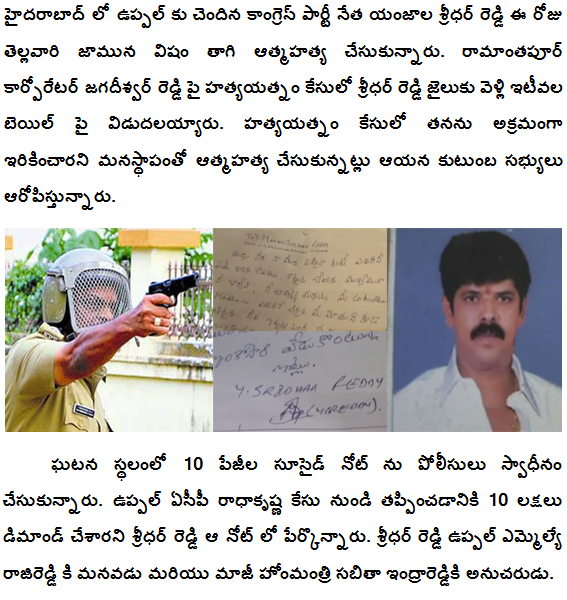 హైదరాబాద్ లో ఉప్పల్ కు చెందిన కాంగ్రెస్ పార్టీ నేత యంజాల శ్రీధర్ రెడ్డి ఈ రోజు
తెల్లవారి జామున విషం తాగి ఆత్మహత్య చేసుకున్నారు. రామాంతపూర్
కార్పోరేటర్ జగదీశ్వర్ రెడ్డి పై హత్యయత్నం కేసులో శ్రీధర్ రెడ్డి జైలుకు వెళ్లి ఇటీవల
బెయిల్ పై విడుదలయ్యారు. హత్యయత్నం కేసులో తనను అక్రమంగా
ఇరికించారని మనస్థాపంతో ఆత్మహత్య చేసుకున్నట్లు ఆయన కుటుంబ సభ్యులు
ఆరోపిస్తున్నారు.
Y. SRIDHAR REDDY
ఘటన స్థలంలో 10 పేజీల సూసైడ్ నోట్ ను పోలీసులు స్వాధీనం
చేసుకున్నారు. ఉప్పల్ ఏసీపీ రాధాకృష్ణ కేసు నుండి తప్పించడానికి 10 లక్షలు
డిమాండ్ చేశారని శ్రీధర్ రెడ్డి ఆ నోట్ లో పేర్కొన్నారు. శ్రీధర్ రెడ్డి ఉప్పల్ ఎమ్మెల్యే
రాజిరెడ్డి కి మనవడు మరియు మాజీ హోంమంత్రి సబితా ఇంద్రారెడ్డికి అనుచరుడు.